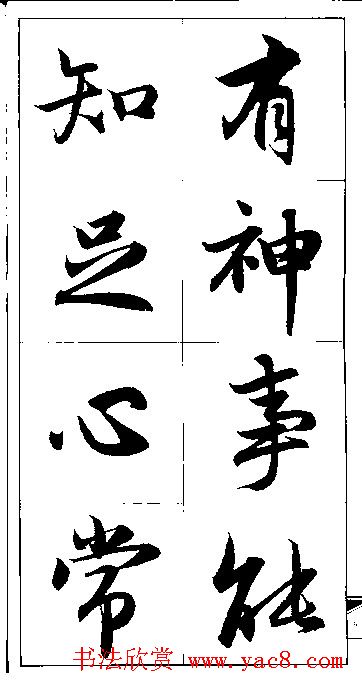 有神事能
知足心常
书法欣赏 www.yac8.com